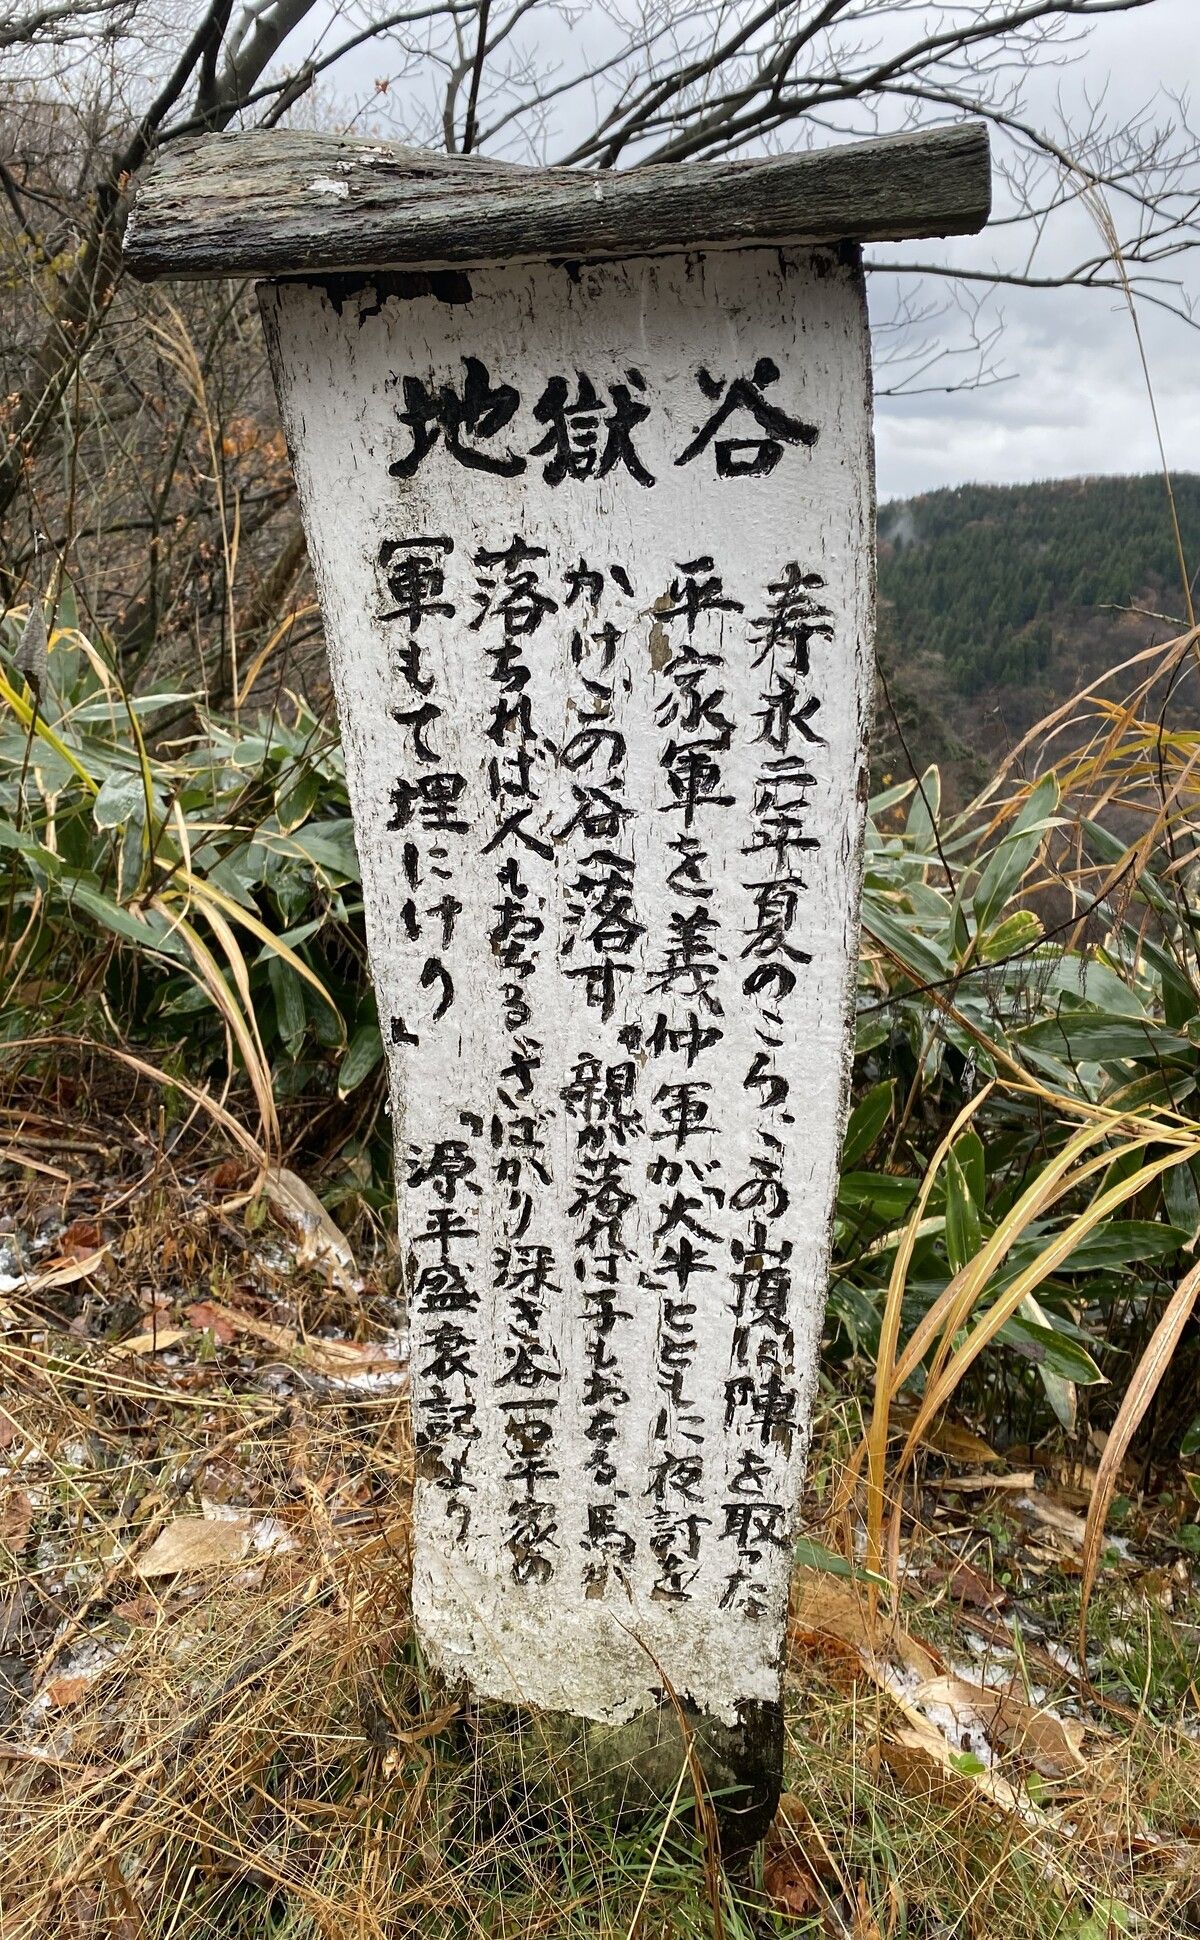 地獄谷
寿永二年夏のころ、この山頂に陣を取った
平家軍を義仲軍が「火牛」とともに夜討を
かけこの谷へ落す。「親が落れば子もおちる、馬が
落ちれば人もおちるさばかり深き谷一つ平家の
軍もて埋にけり」
「源平盛衰記より